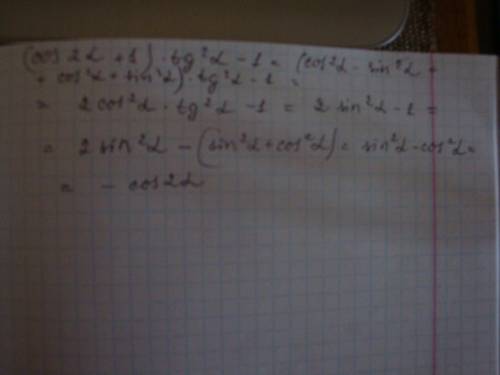 (cos 2α + 1) · tg²α - 1 = (cos²α - sin²α +
+ cos²α + sin²α) · tg²α - 1 =
= 2cos²α · tg²α - 1 = 2 sin²α - 1 =
= 2 sin²α - (sin²α + cos²α) = sin²α - cos²α =
= - cos2α